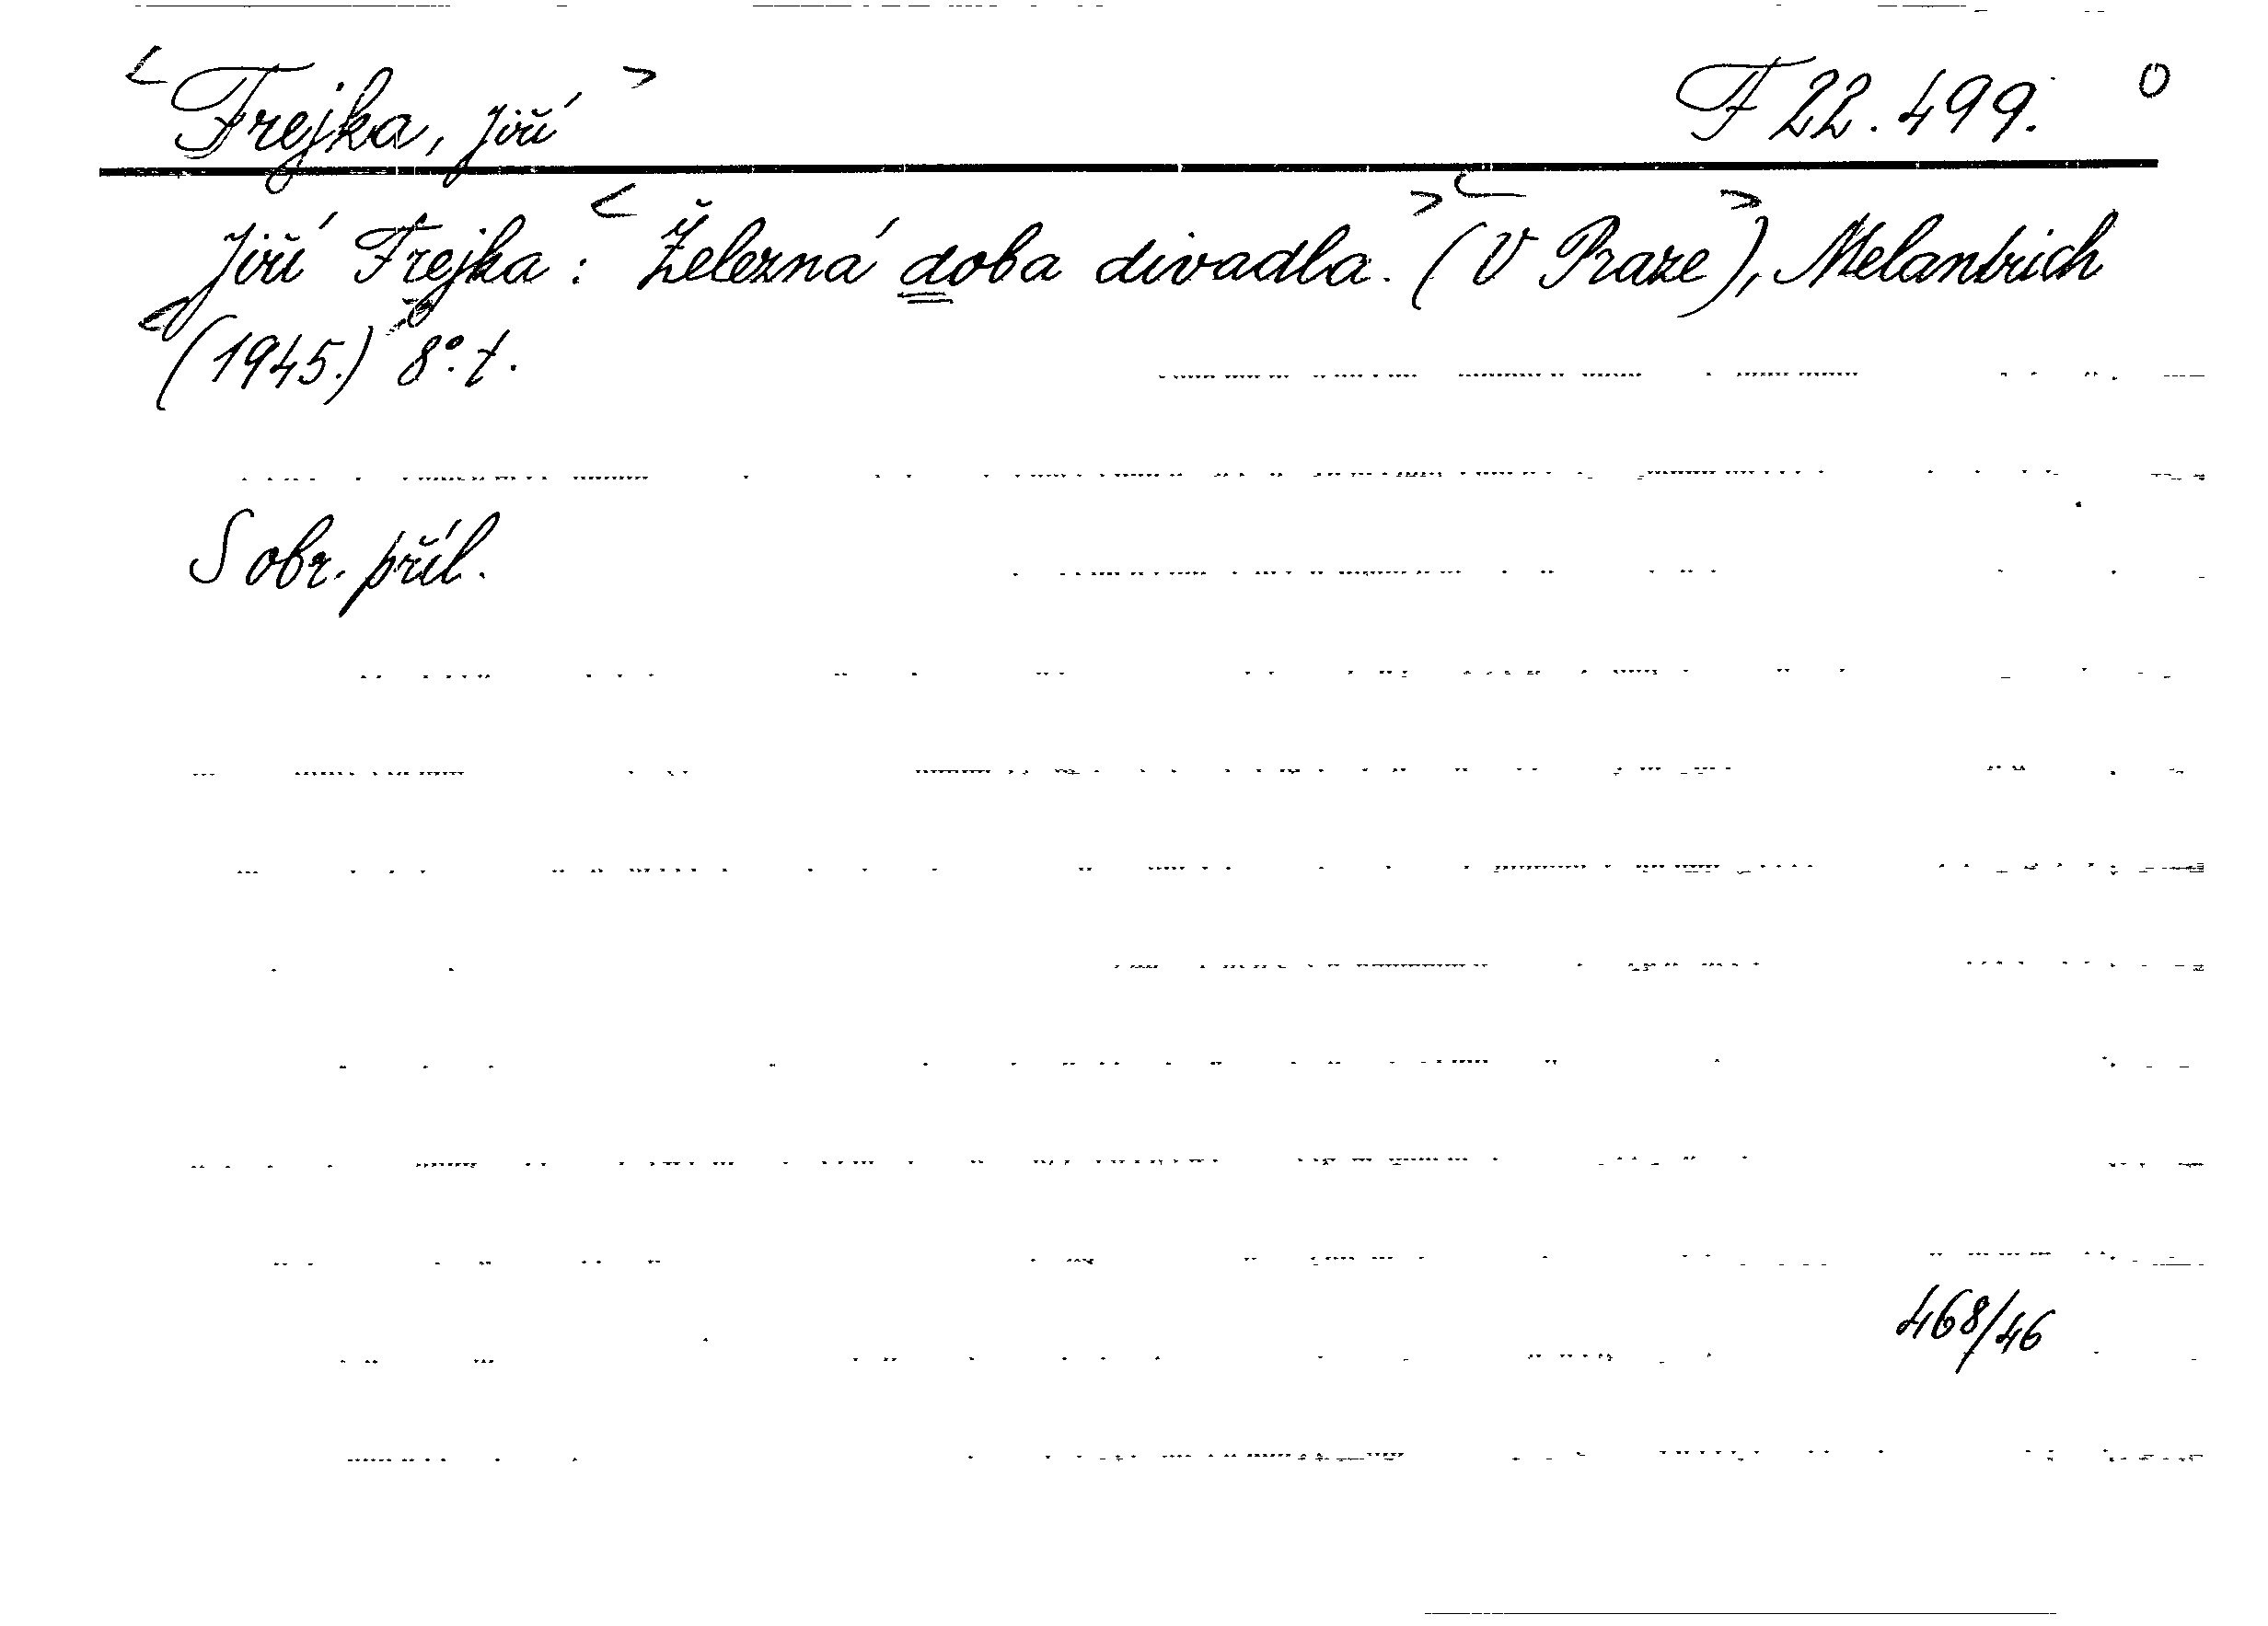 <Frejka, Jiří> F 22.499. O
Jiří Frejka: <Železná doba divadla.> <(V Praze>), Melantrich
<(1945.)> 8°. t.
S obr. příl.
468/46